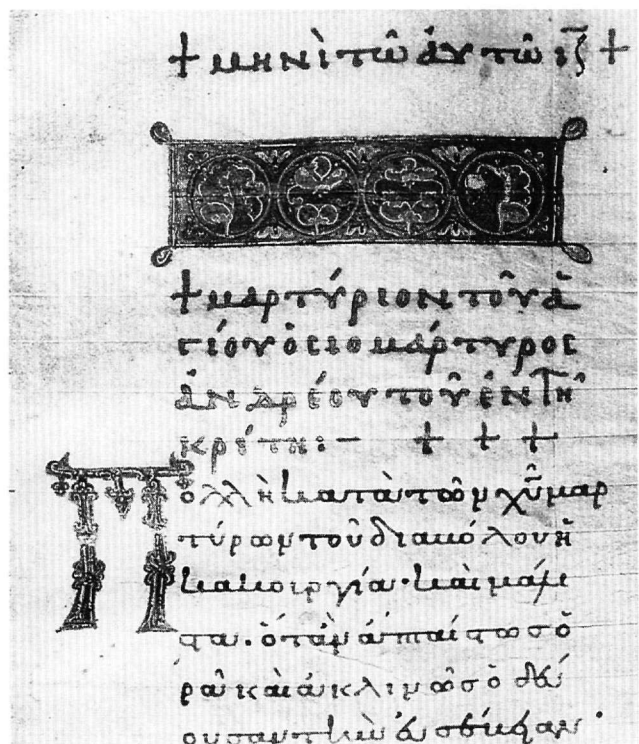 + μηνὶ τῶ ἀυτῶ ιζ +
+ μαρτύριον τοῦ ἁ
γίου ὁσιομάρτυρος
ἀνδρέου τοῦ ἐν τῆ
κρίτη :– + + +
Πολλὴ κατὰ τῶν χῦ μαρ
τύρων τοῦ διαβόλου ἡ
κακουργία · καὶ μάλι
στα . ὅταν ἀπταίστως ὁ
ρᾶ καὶ ἀκλινῶς ὁδεύ
ουσαν τὴν εὐσέβειαν ·